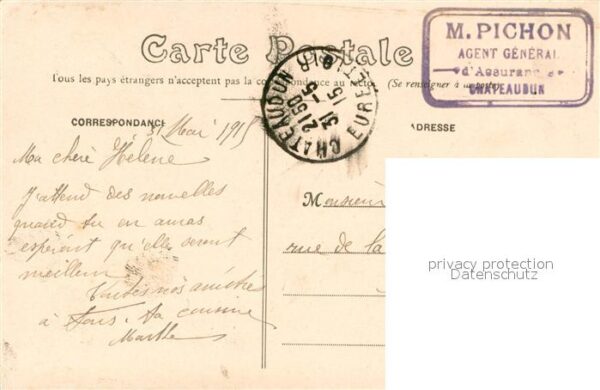 Carte Postale
M. PICHON
AGENT GÉNÉRAL
d'Assurances
CHATEAUDUN
Tous les pays étrangers n'acceptent pas la correspondance au recto (Se renseigner à la poste)
CORRESPONDANCE
ADRESSE
CHATEAUDUN
EURE ET LIR
21 50
31 - 5
15
31 Mai 1915
Ma chère Hélène
J'attend des nouvelles
quand tu en auras
espérant qu'elles seront
meilleur
Toutes nos amitiés
à tous. ta cousine
Marthe
Monsieur
rue de la
privacy protection
Datenschutz